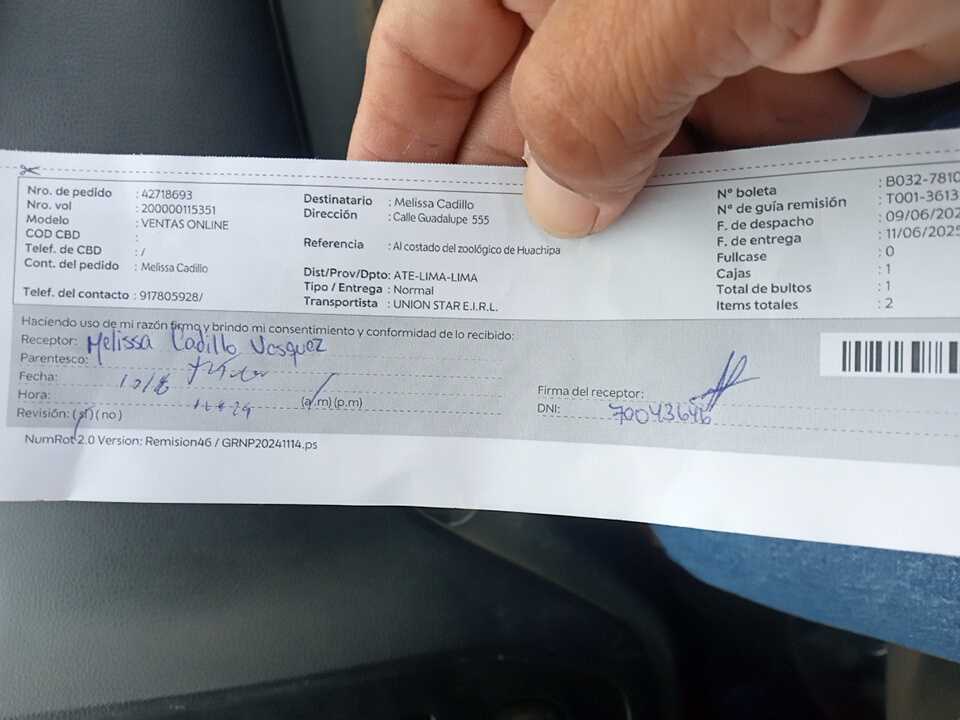 Nro. de pedido : 42718693
Nro. vol : 200000115351
Modelo : VENTAS ONLINE
COD CBD :
Telef. de CBD : /
Cont. del pedido : Melissa Cadillo
Telef. del contacto : 917805928/
Destinatario : Melissa Cadillo
Dirección : Calle Guadalupe 555
Referencia : Al costado del zoológico de Huachipa
Dist/Prov/Dpto: ATE-LIMA-LIMA
Tipo / Entrega : Normal
Transportista : UNION STAR E.I.R.L.
N° boleta : B032-7810
N° de guía remisión : T001-3613
F. de despacho : 09/06/202
F. de entrega : 11/06/2025
Fullcase : 0
Cajas : 1
Total de bultos : 1
Items totales : 2
Haciendo uso de mi razón firmo y brindo mi consentimiento y conformidad de lo recibido:
Receptor: Melissa Cadillo Vasquez
Parentesco:
Fecha:
Hora: (a.m)(p.m)
Revisión: (si)(no)
Firma del receptor:
DNI: 70043646
NumRot 2.0 Version: Remision46 / GRNP20241114.ps